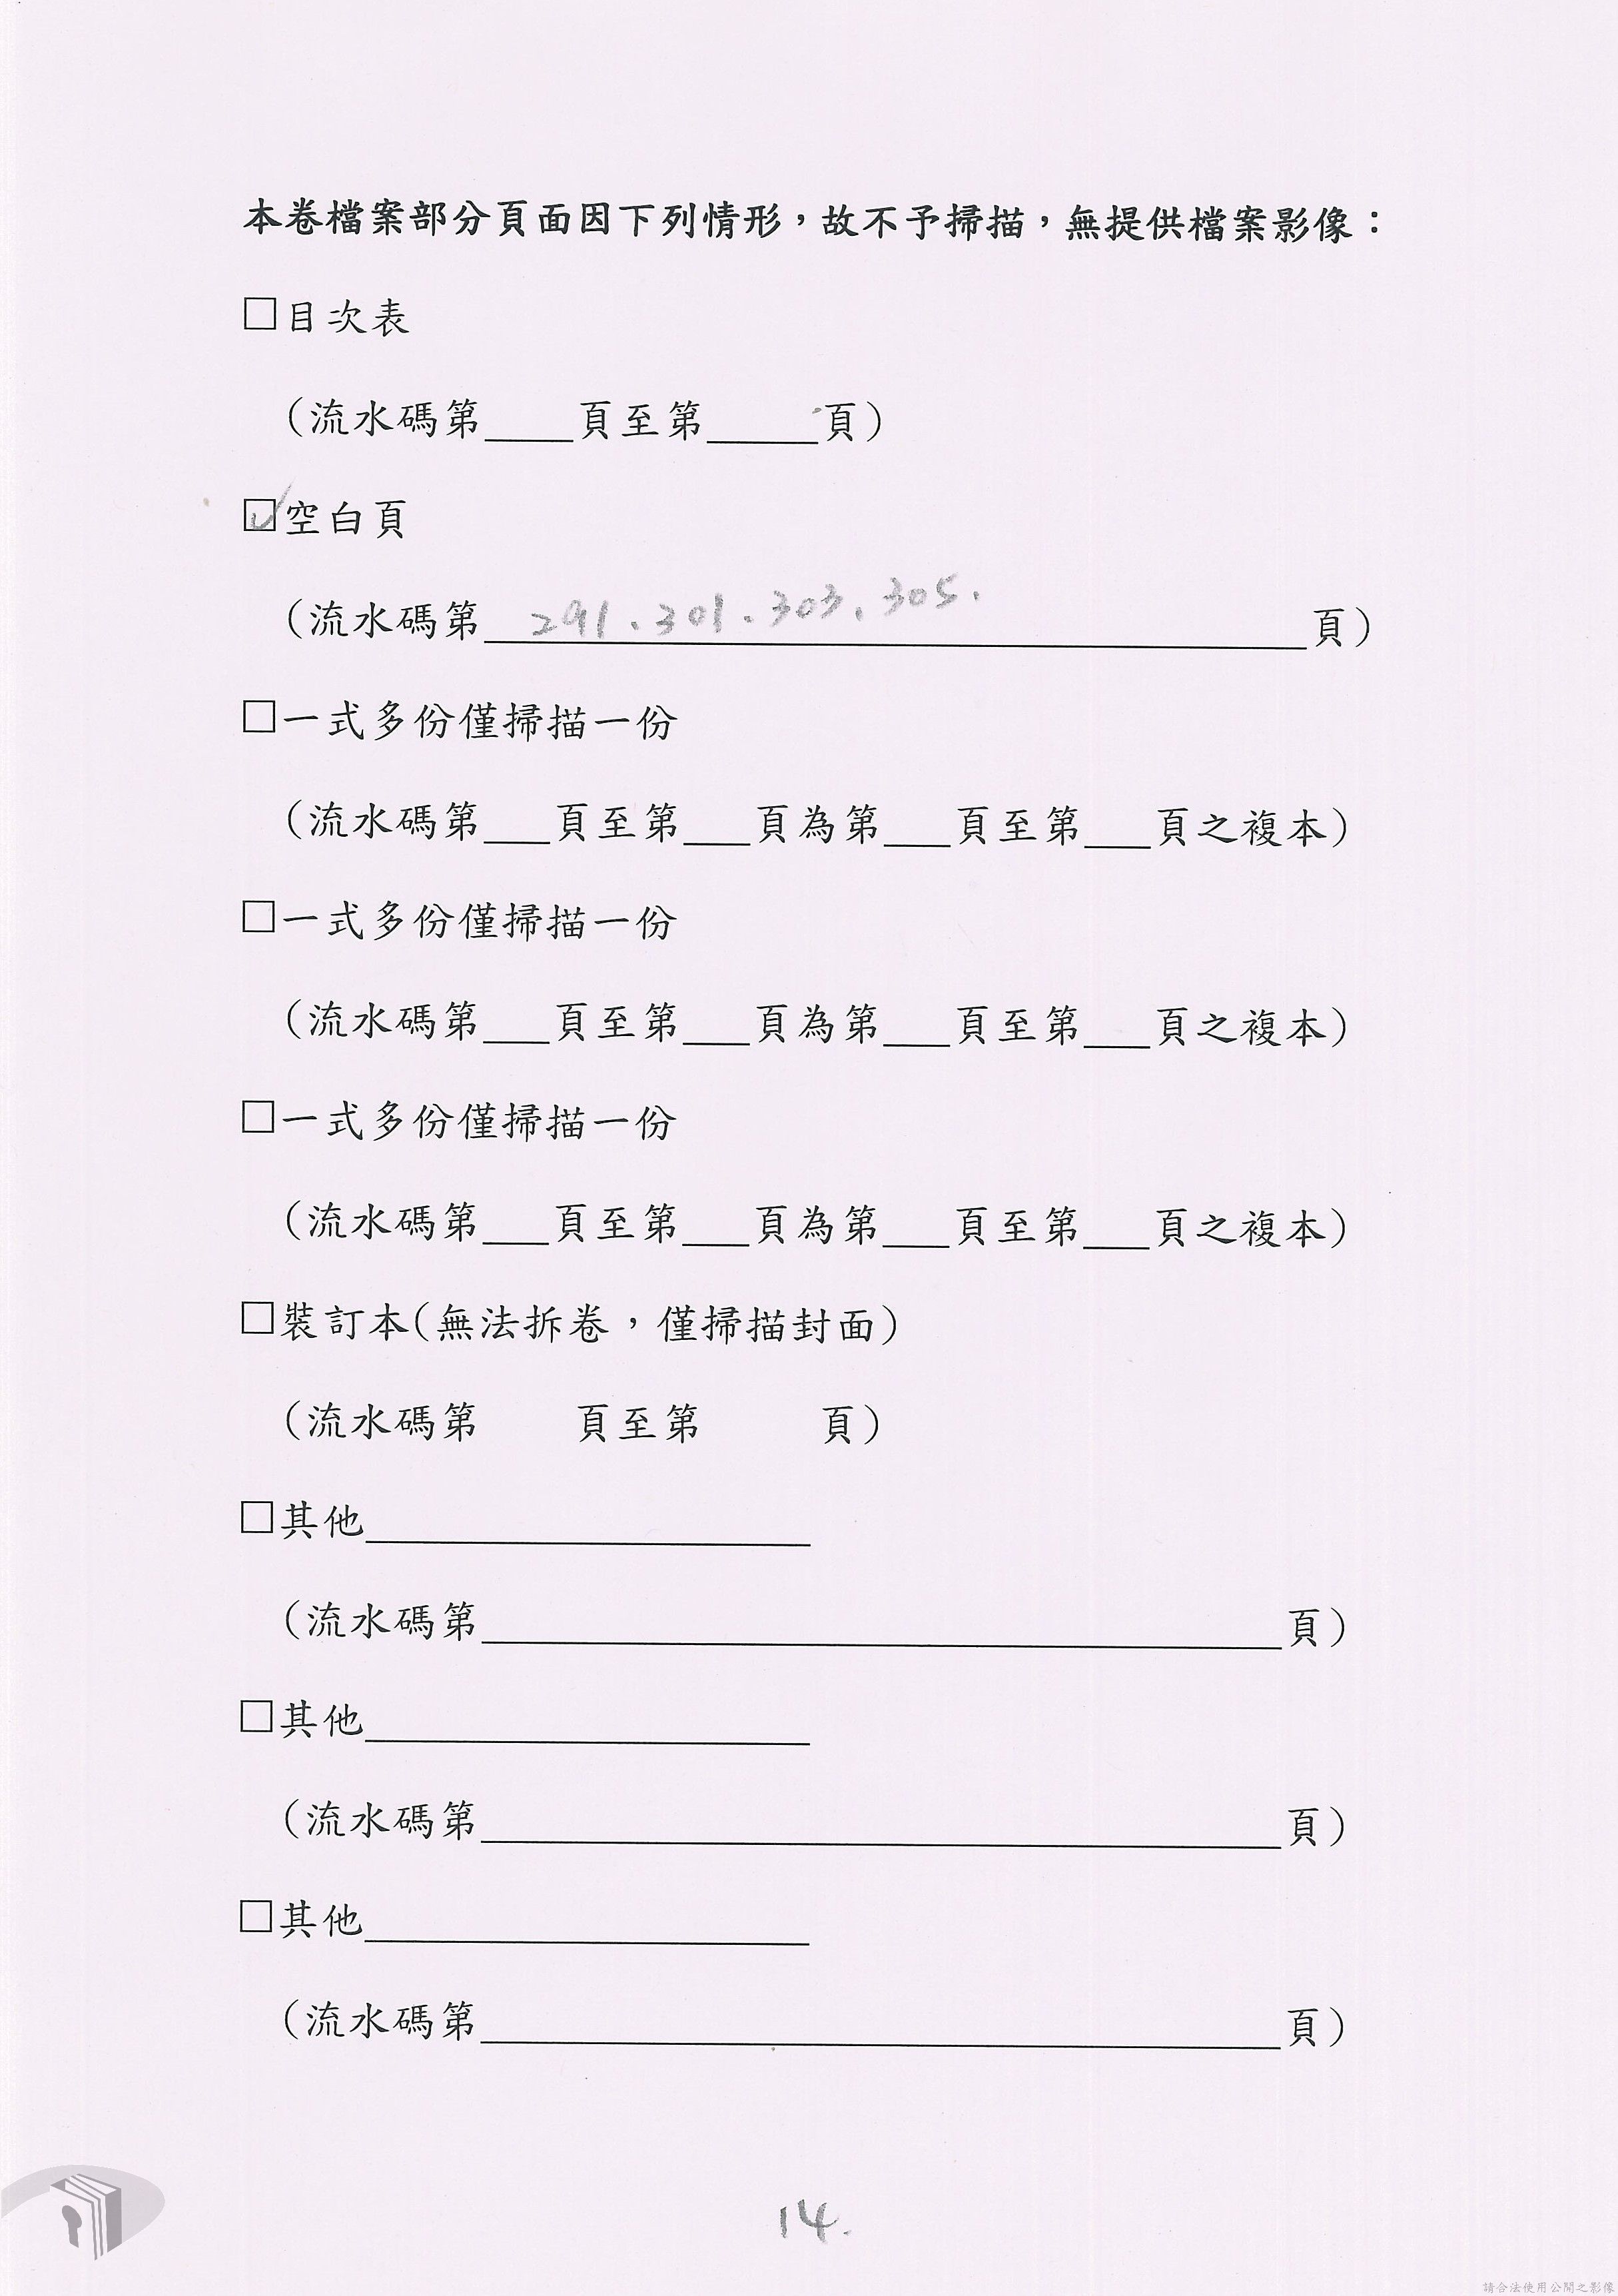 本卷檔案部分頁面因下列情形，故不予掃描，無提供檔案影像：
□目次表
（流水碼第____頁至第_____頁）
☑空白頁
（流水碼第 291.301.303.305. 頁）
□一式多份僅掃描一份
（流水碼第___頁至第___頁為第___頁至第___頁之複本）
□一式多份僅掃描一份
（流水碼第___頁至第___頁為第___頁至第___頁之複本）
□一式多份僅掃描一份
（流水碼第___頁至第___頁為第___頁至第___頁之複本）
□裝訂本(無法拆卷，僅掃描封面)
（流水碼第　　頁至第　　頁）
□其他____________________
（流水碼第____________________________________頁）
□其他____________________
（流水碼第____________________________________頁）
□其他____________________
（流水碼第____________________________________頁）
14.
請合法使用公開之影像